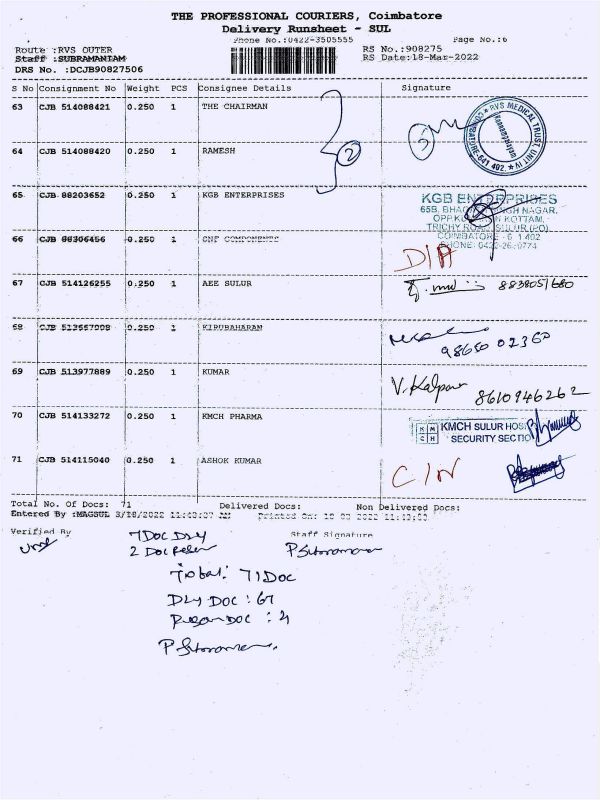 THE PROFESSIONAL COURIERS, Coimbatore
Delivery Runsheet - SUL
Phone No.:0422-3505555
Page No.:6
Route :RVS OUTER
RS No.:908275
Staff :SUBRAMANIAM
RS Date:18-Mar-2022
DRS No. :DCJB90827506
S No Consignment No Weight PCS Consignee Details Signature
63 CJB 514088421 0.250 1 THE CHAIRMAN
RVS MEDICAL TRUST, UNIT IV
COIMBATORE-641 402.
2
64 CJB 514088420 0.250 1 RAMESH
65 CJB 88203652 0.250 1 KGB ENTERPRISES
KGB ENTERPRISES
TRICHY ROAD, SULUR (PO)
66 CJB 88306456 0.250 1 CNF COMPONENTS
D/A
67 CJB 514126255 0.250 1 AEE SULUR
8838051680
68 CJB 513667008 0.250 1 KIRUBAHARAN
98650 02360
69 CJB 513977889 0.250 1 KUMAR
V. Kalpana 8610946262
70 CJB 514133272 0.250 1 KMCH PHARMA
KMCH SULUR HOSPI
SECURITY SECTIO
71 CJB 514115040 0.250 1 ASHOK KUMAR
C/N
Total No. Of Docs: 71 Delivered Docs: Non Delivered Docs:
Entered By :MAGSUL 3/18/2022
Verified By
7 Doc Dly
Staff Signature
2 Doc
Total: 71 Doc
Dly Doc : 67
Doc : 4